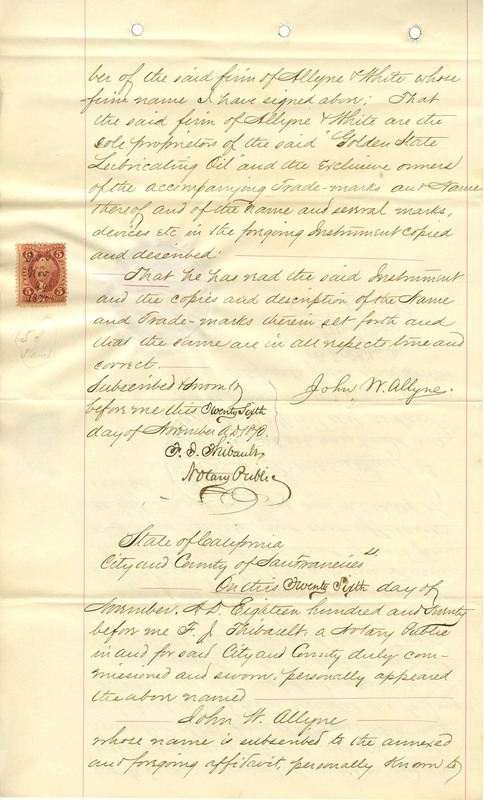 ber of the said firm of Allyne & White whose
firm name I have signed above; That
the said firm of Allyne & White are the
sole proprietors of the said "Golden State
Lubricating Oil" and the Exclusive owners
of the accompanying Trade-marks and Name
thereof and of the name and several marks,
devices etc in the forgoing Instrument copied
and described:
That he has read the said Instrument
and the copies and description of the Name
and Trade-marks therein set forth and
that the same are in all respects true and
correct.
Subscribed & sworn to
John W. Allyne.
before me this Twenty Sixth
day of November A.D. 1870.
F. J. Thibault,
Notary Public
State of California
City and County of San Francisco ss
On this Twenty Sixth day of
November. A.D. Eighteen hundred and Seventy
before me F. J. Thibault, a Notary Public
in and for said City and County duly com-
missioned and sworn, personally appeared
the above named
John W. Allyne
whose name is subscribed to the annexed
and forgoing affidavit, personally Known to
5
5
Nov
26
1870